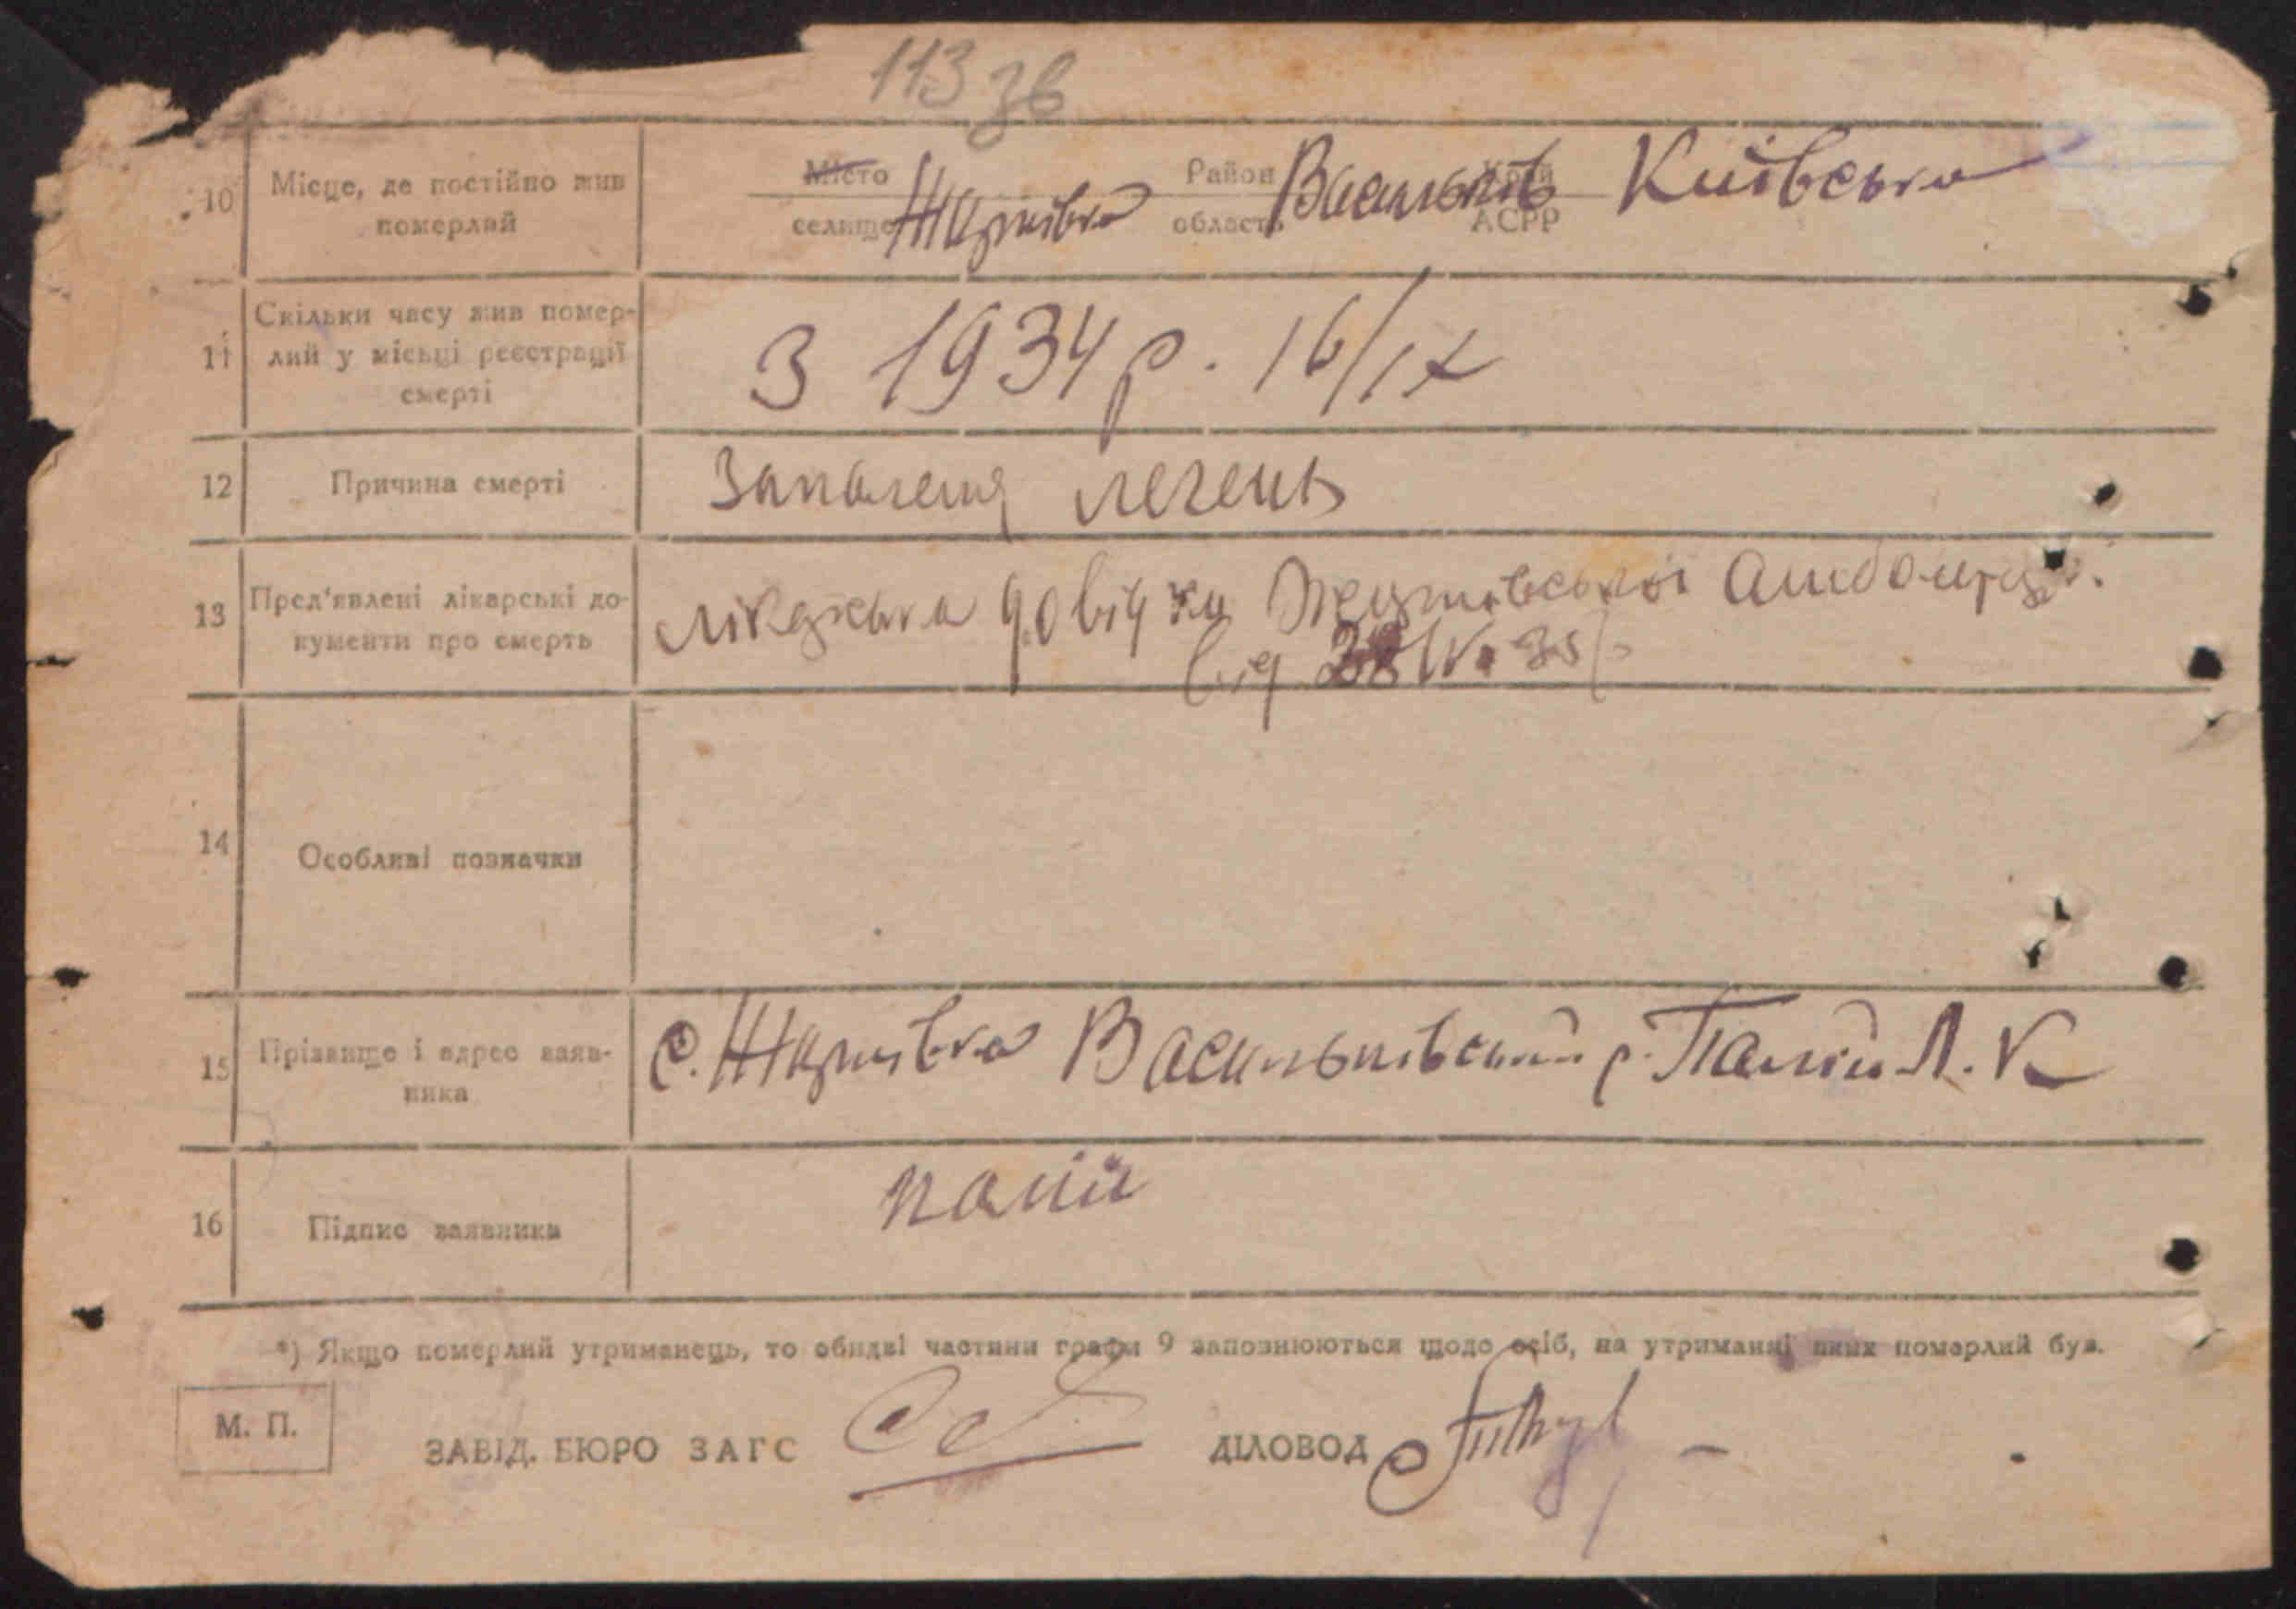 113 зв
10 Місце, де постійно жив померлий
Місто
селище Жуківка Район область Васильків Край АСРР Київська
11 Скільки часу жив помер-
лий у місьці реєстрації
смерті
З 1934 р. 16/IX
12 Причина смерті Запаленя легень
13 Пред'явлені лікарські до-
кументи про смерть
лікарська довідка амболяторії
від 35
14 Особливі позначки
15 Прізвище і адрес заяв-
ника
с. Васильківський р. Палій Л. К
16 Підпис заявника Палій
*) Якщо померлий утриманець, то обидві частини графи 9 заповнюються щодо осіб, на утриманні яких померлий був.
М. П.
ЗАВІД. БЮРО ЗАГС ДІЛОВОД